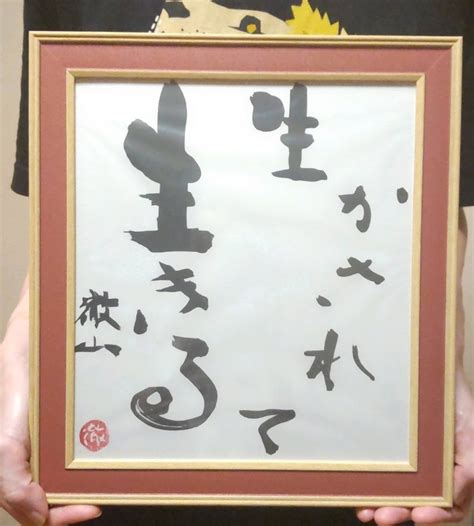 生かされて
生きる
徹山
徹